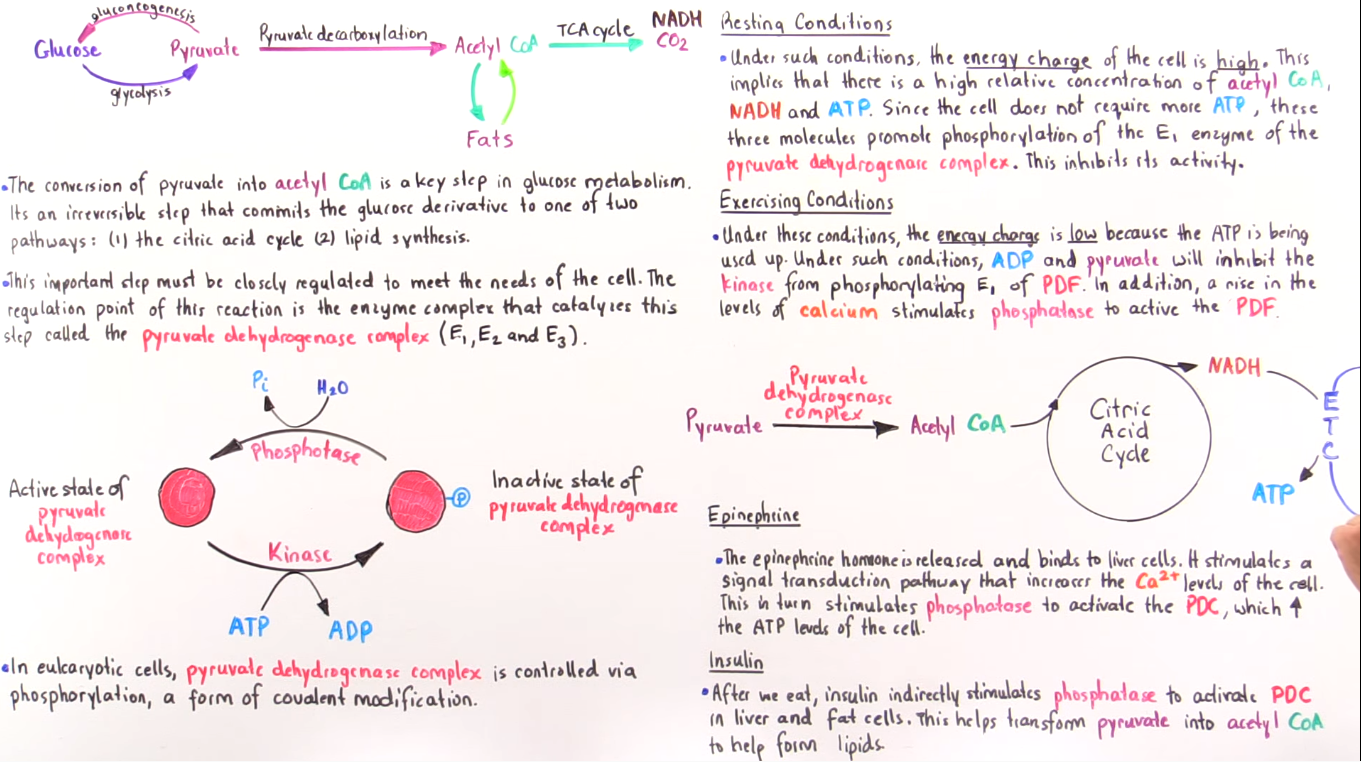 gluconeogenesis
Glucose Pyruvate
glycolysis
Pyruvate decarboxylation
Acetyl CoA
TCA cycle
NADH
CO2
Fats
•The conversion of pyruvate into acetyl CoA is a key step in glucose metabolism.
Its an irreversible step that commits the glucose derivative to one of two
pathways: (1) the citric acid cycle (2) lipid synthesis.
•This important step must be closely regulated to meet the needs of the cell. The
regulation point of this reaction is the enzyme complex that catalyzes this
step called the pyruvate dehydrogenase complex (E1, E2 and E3).
Pi H2O
Phosphotase
Active state of
pyruvate
dehydrogenase
complex
P
Inactive state of
pyruvate dehydrogenase
complex
Kinase
ATP ADP
•In eukaryotic cells, pyruvate dehydrogenase complex is controlled via
phosphorylation, a form of covalent modification.
Resting Conditions
•Under such conditions, the energy charge of the cell is high. This
implies that there is a high relative concentration of acetyl CoA,
NADH and ATP. Since the cell does not require more ATP, these
three molecules promote phosphorylation of the E1 enzyme of the
pyruvate dehydrogenase complex. This inhibits its activity.
Exercising Conditions
•Under these conditions, the energy charge is low because the ATP is being
used up. Under such conditions, ADP and pyruvate will inhibit the
kinase from phosphorylating E1 of PDF. In addition, a rise in the
levels of calcium stimulates phosphatase to active the PDF.
Pyruvate
Pyruvate
dehydrogenase
complex
Acetyl CoA
Citric
Acid
Cycle
NADH
E
T
C
ATP
Epinephrine
•The epinephrine hormone is released and binds to liver cells. It stimulates a
signal transduction pathway that increases the Ca2+ levels of the cell.
This in turn stimulates phosphatase to activate the PDC, which ↑
the ATP levels of the cell.
Insulin
•After we eat, insulin indirectly stimulates phosphatase to activate PDC
in liver and fat cells. This helps transform pyruvate into acetyl CoA
to help form lipids.